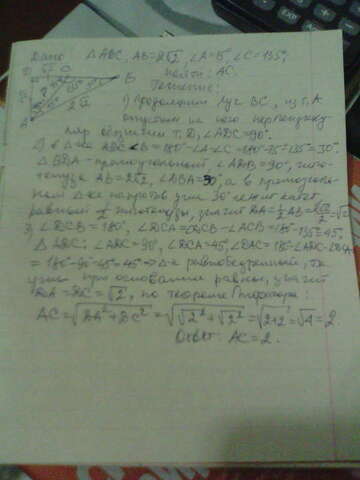 Дано: △ABC, AB=2√2, ∠A=15°, ∠C=135°,
Найти: AC.
Решение:
1) Продолжим луч BC, из т. A
опустим на него перпендику
ляр обозначим т. D, ∠ADC=90°.
2) в △-ке ABC ∠B=180°-∠A-∠C=180°-15°-135°=30°
△BDA - прямоугольный ∠ADB=90°, гипо-
тенуза AB=2√2, ∠ABA=30°, а в прямоуголь-
ном △-ке напротив угла 30° лежит катет,
равный ½ гипотенузы, значит DA=½AB=2√2/2=√2
3) ∠DCB=180°, ∠DCA=∠DCB-∠ACB=180°-135°=45°,
△ADC, ∠ADC=90°, ∠DCA=45°, ∠DAC=180°-∠ADC-∠DCA
=180°-90°-45°=45° ⇒ △-к равнобедренный, тк
углы при основании равны, значит
DA=DC=√2, по теореме Пифагора:
AC=√DA²+DC²=√√2²+√2²=√2+2=√4=2.
Ответ: AC=2.